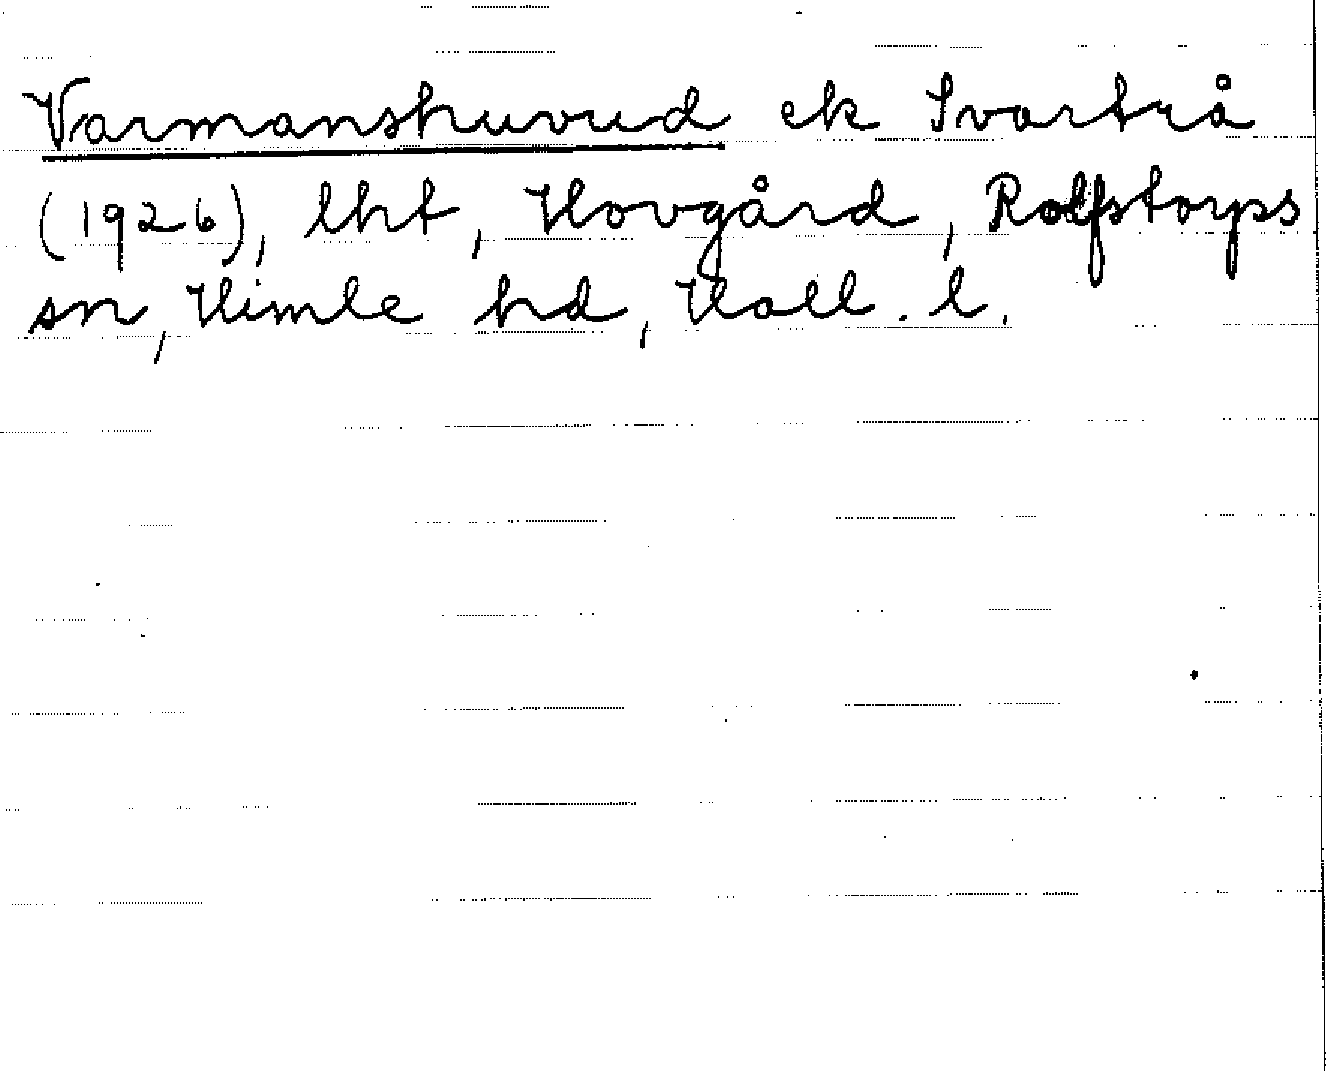 Varmanshuvud ek Svartrå
(1926), lht, Hovgård, Rolfstorps
sn, Himle hd, Hall. l.